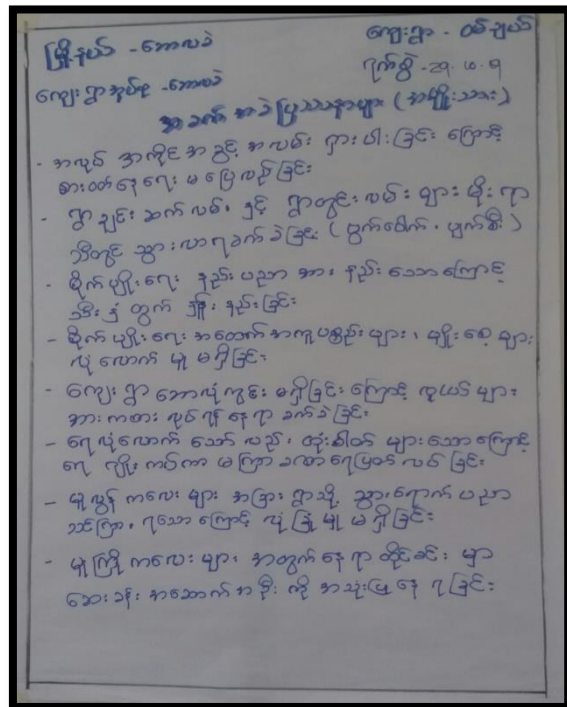 မြို့နယ် - ဘောလခဲ
ကျေးရွာ - ဝမ်ချယ်
ကျေးရွာအုပ်စု - ဘောလခဲ
ရက်စွဲ - 29. ၁၀. ၅
အခက် အခဲပြဿနာများ (အမျိုးသား)
- အလုပ် အကိုင် အခွင့် အလမ်း ရှားပါးခြင်း ကြောင့်
စားဝတ်နေရေး မပြေလည်ခြင်း
- ရွာချင်း ဆက်လမ်း နှင့် ရွာတွင်း လမ်း များ မိုးရာ
သီတွင် သွားလာရခက်ခဲခြင်း (ပွက်ပေါက်၊ ပျက်စီး)
- စိုက်ပျိုးရေး နည်းပညာ အား နည်းသောကြောင့်
သီးနှံ ထွက် နှုန်း နည်းခြင်း
- စိုက်ပျိုးရေး အထောက် အကူပစ္စည်းများ ၊ မျိုးစေ့များ
လုံလောက် မှု မရှိခြင်း
- ကျေးရွာ ဘောလုံးကွင်း မရှိခြင်းကြောင့် လူငယ် များ
အားကစား လုပ်ရန် နေရာ ခက်ခဲခြင်း
- ရေလုံလောက် သော် လည်း ထုံးဓါတ် များသောကြောင့်
ရေ ပိုက် ကပ်ကာ မကြာခဏ ရေပြတ် လပ် ခြင်း
- မူလွန် ကလေး များ အခြား ရွာသို့ သွားရောက် ပညာ
သင်ကြား ရသောကြောင့် လုံခြုံမှု မရှိခြင်း
- မူကြို ကလေး များ အတွက် နေရာ ထိုင်ခင်း မှာ
ဆေးခန်း အဆောက်အဦး ကို အသုံးပြု နေ ရခြင်း